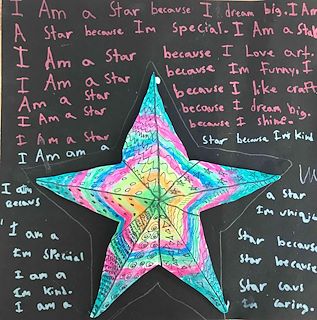 I Am a Star because I dream big. I Am
A Star because Im special. I Am a Star
I Am a Star because I Love art.
I Am a Star because Im funny. I
Am a Star because I like craft
Am a Star because I dream big.
I Am a Star because I shine.
I Am am a Star because Im kind
I am a Star
Becaus Im uniq
I am a Star because
Im special Star because
I am a Star caus
Im kind. Im caring.
I am a